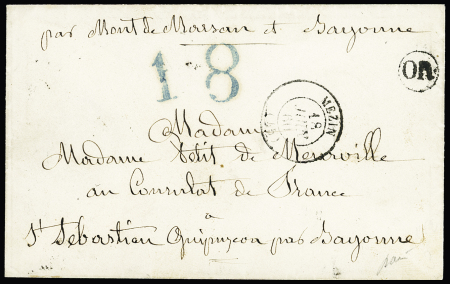 par Mont de Marsan et Bayonne
18
OR
MEZIN
18
Madame
Madame Petit de Meurville
au Consulat de France
à
St Sebastien Guipuzcoa par Bayonne